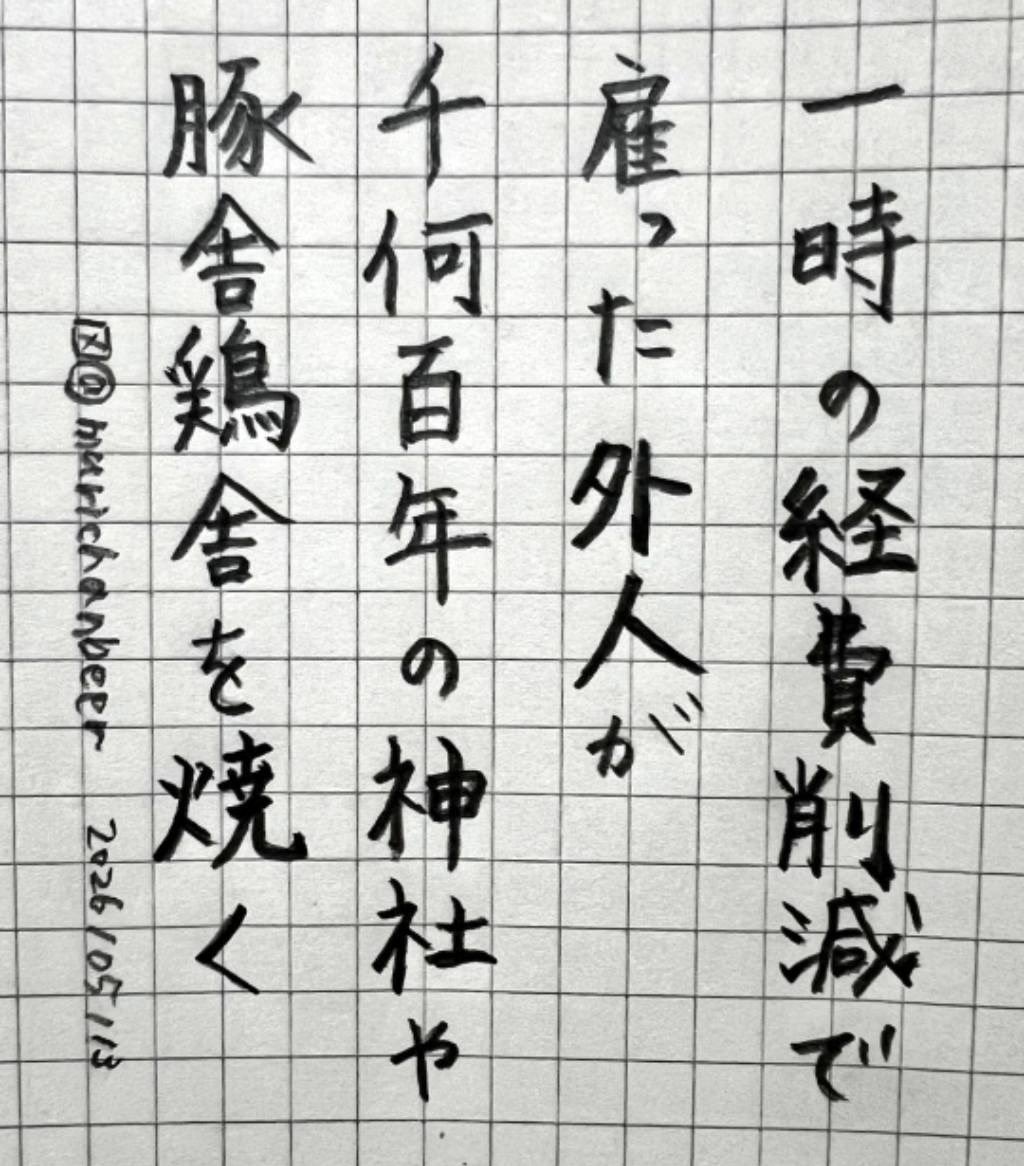 一時の経費削減で
雇った外人が
千何百年の神社や
豚舎鶏舎を焼く
X @murichanbeer 2026/05/13